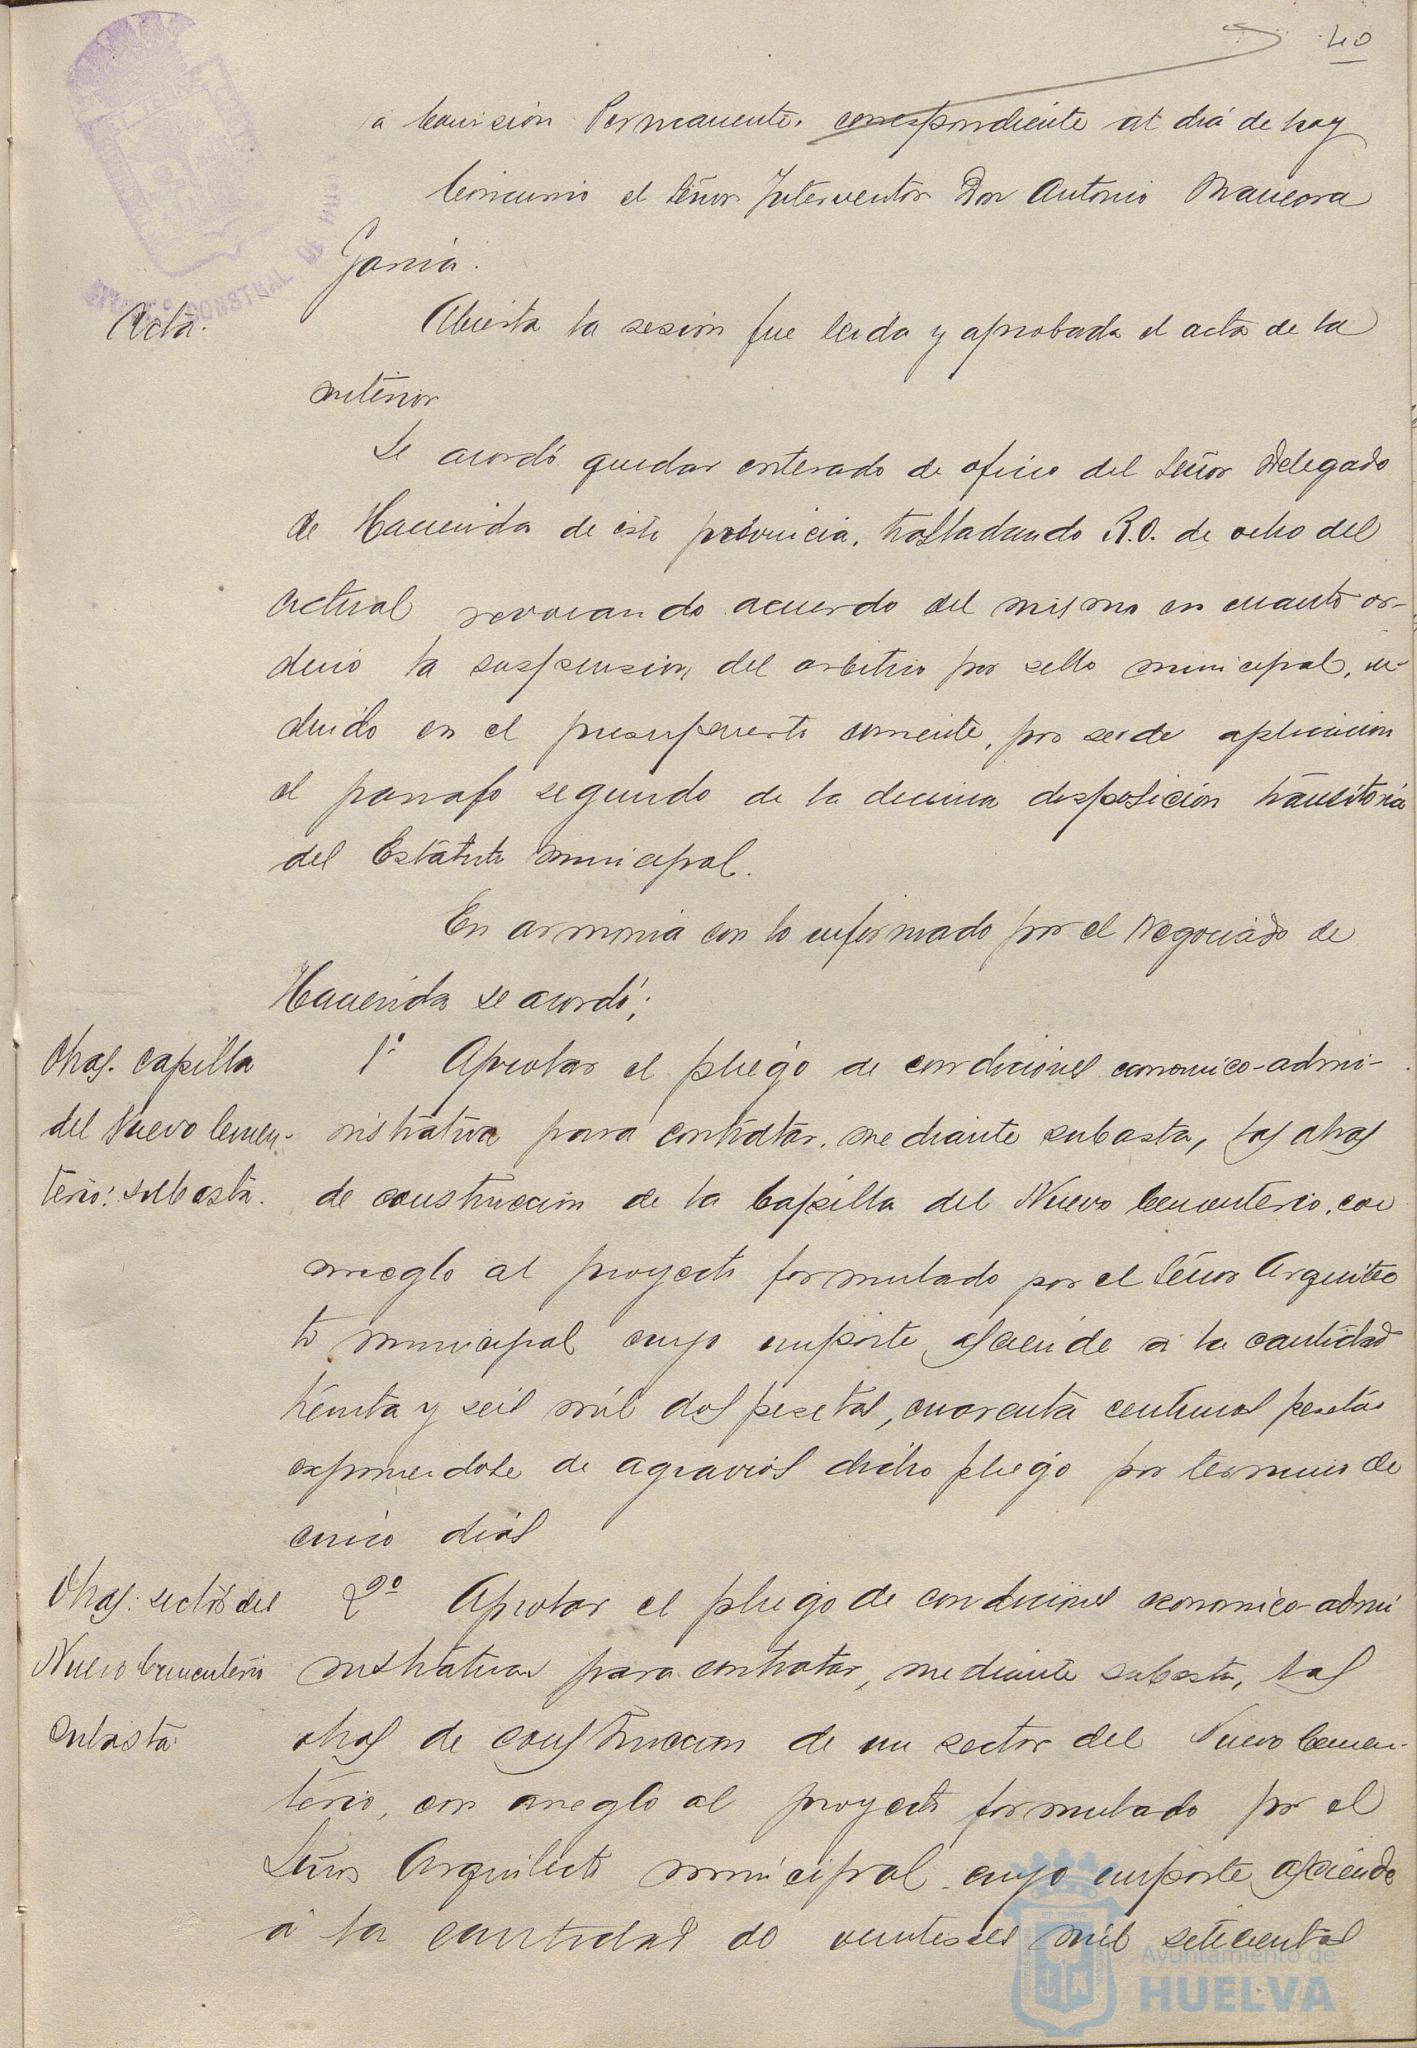 40
a Comision Permanente. correspondiente al dia de hoy
Concurrio el Señor Interventor Don Antonio
Garcia.
Acta.
Abierta la sesion fue leida y aprobada el acta de la
anterior
Se acordó quedar enterado de oficio del Señor Delegado
de Hacienda de esta provincia, trasladando R.O. de ocho del
actual revocando acuerdo del mismo en cuanto or-
denó la suspension del arbitrio por sello municipal, in-
cluido en el presupuesto corriente, por ser de aplicacion
el parrafo segundo de la decima disposicion transitoria
del Estatuto municipal.
En armonia con lo informado por el Negociado de
Hacienda se acordó;
Obras. capilla
del Nuevo Cemen-
terio: subasta.
1º Aprobar el pliego de condiciones economico-admi-
nistrativas para contratar, mediante subasta, las obras
de construccion de la Capilla del Nuevo Cementerio, con
arreglo al proyecto formulado por el Señor Arquitec
to municipal cuyo importe asciende a la cantidad
treinta y seis mil dos pesetas, cuarenta centimos pesetas
exponiendose de agravios dicho pliego por termino de
cinco dias
Obras: sector del
Nuevo Cementerio
Subasta.
2º Aprobar el pliego de condiciones economico-admi
nistrativas para contratar, mediante subasta, las
obras de construccion de un sector del Nuevo Cemen-
terio, con arreglo al proyecto formulado por el
Señor Arquitecto municipal cuyo importe asciende
a la cantidad de veintiseis mil setecientas
Ayuntamiento de
HUELVA